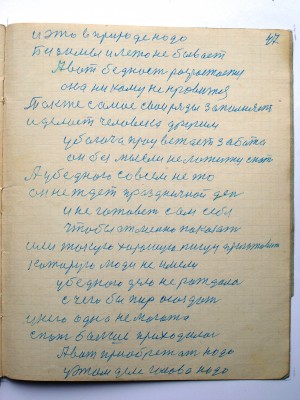 47
и это в природе надо
Без зимы и лето не бывает
А вот бедност разростается
она никому не нравится
Также самое свои ряды заполняет
и делает человека другим
у богача процветает забота
он бы мог не ложится спат
А у бедного совсем не то
он не ждет праздничной ден
и не готовет сам себя
чтобы отменно показат
или такую хорошую пищу приготовит
которую люди не имели
у бедного дело не рождала
с чего бы пир создат
и него одна немогота
спат важние приходилос
А вот приобретат надо
у этом деле голова надо